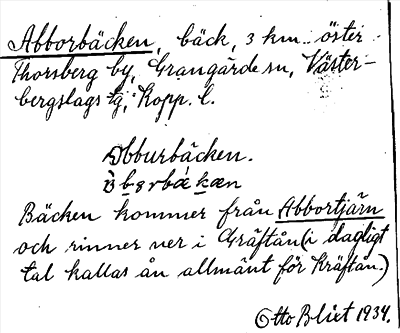 Abborbäcken, bäck, 3 km öster
Thorsberg by, Grangärde sn, Väster-
bergslags tg, Kopp. l.
Åbburbäcken.
Bäcken kommer från Abbortjärn
och rinner ner i Gräftån (i dagligt
tal kallas ån allmänt för Kräftån.)
Otto Blixt 1934.